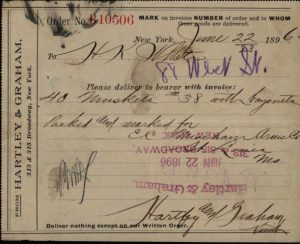 Order No. 610506
MARK on invoices NUMBER of order and to WHOM
these goods are delivered.
New York, June 22 1896
To H K White
84 West St.
Please to deliver to hearer with invoice:
40 Muskets 38 with bayonets
Packed and marked for
Mo.
315 & 317 BROADWAY
NEW YORK
JUN 22 1896
Hartley & Graham
Hartley and Graham
Deliver nothing except on our Written Order.
FROM HARTLEY & GRAHAM,
315 & 317 Broadway, New York.